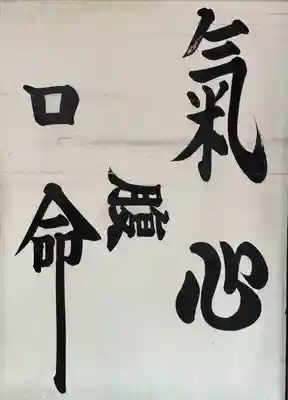 氣心
腹
口命